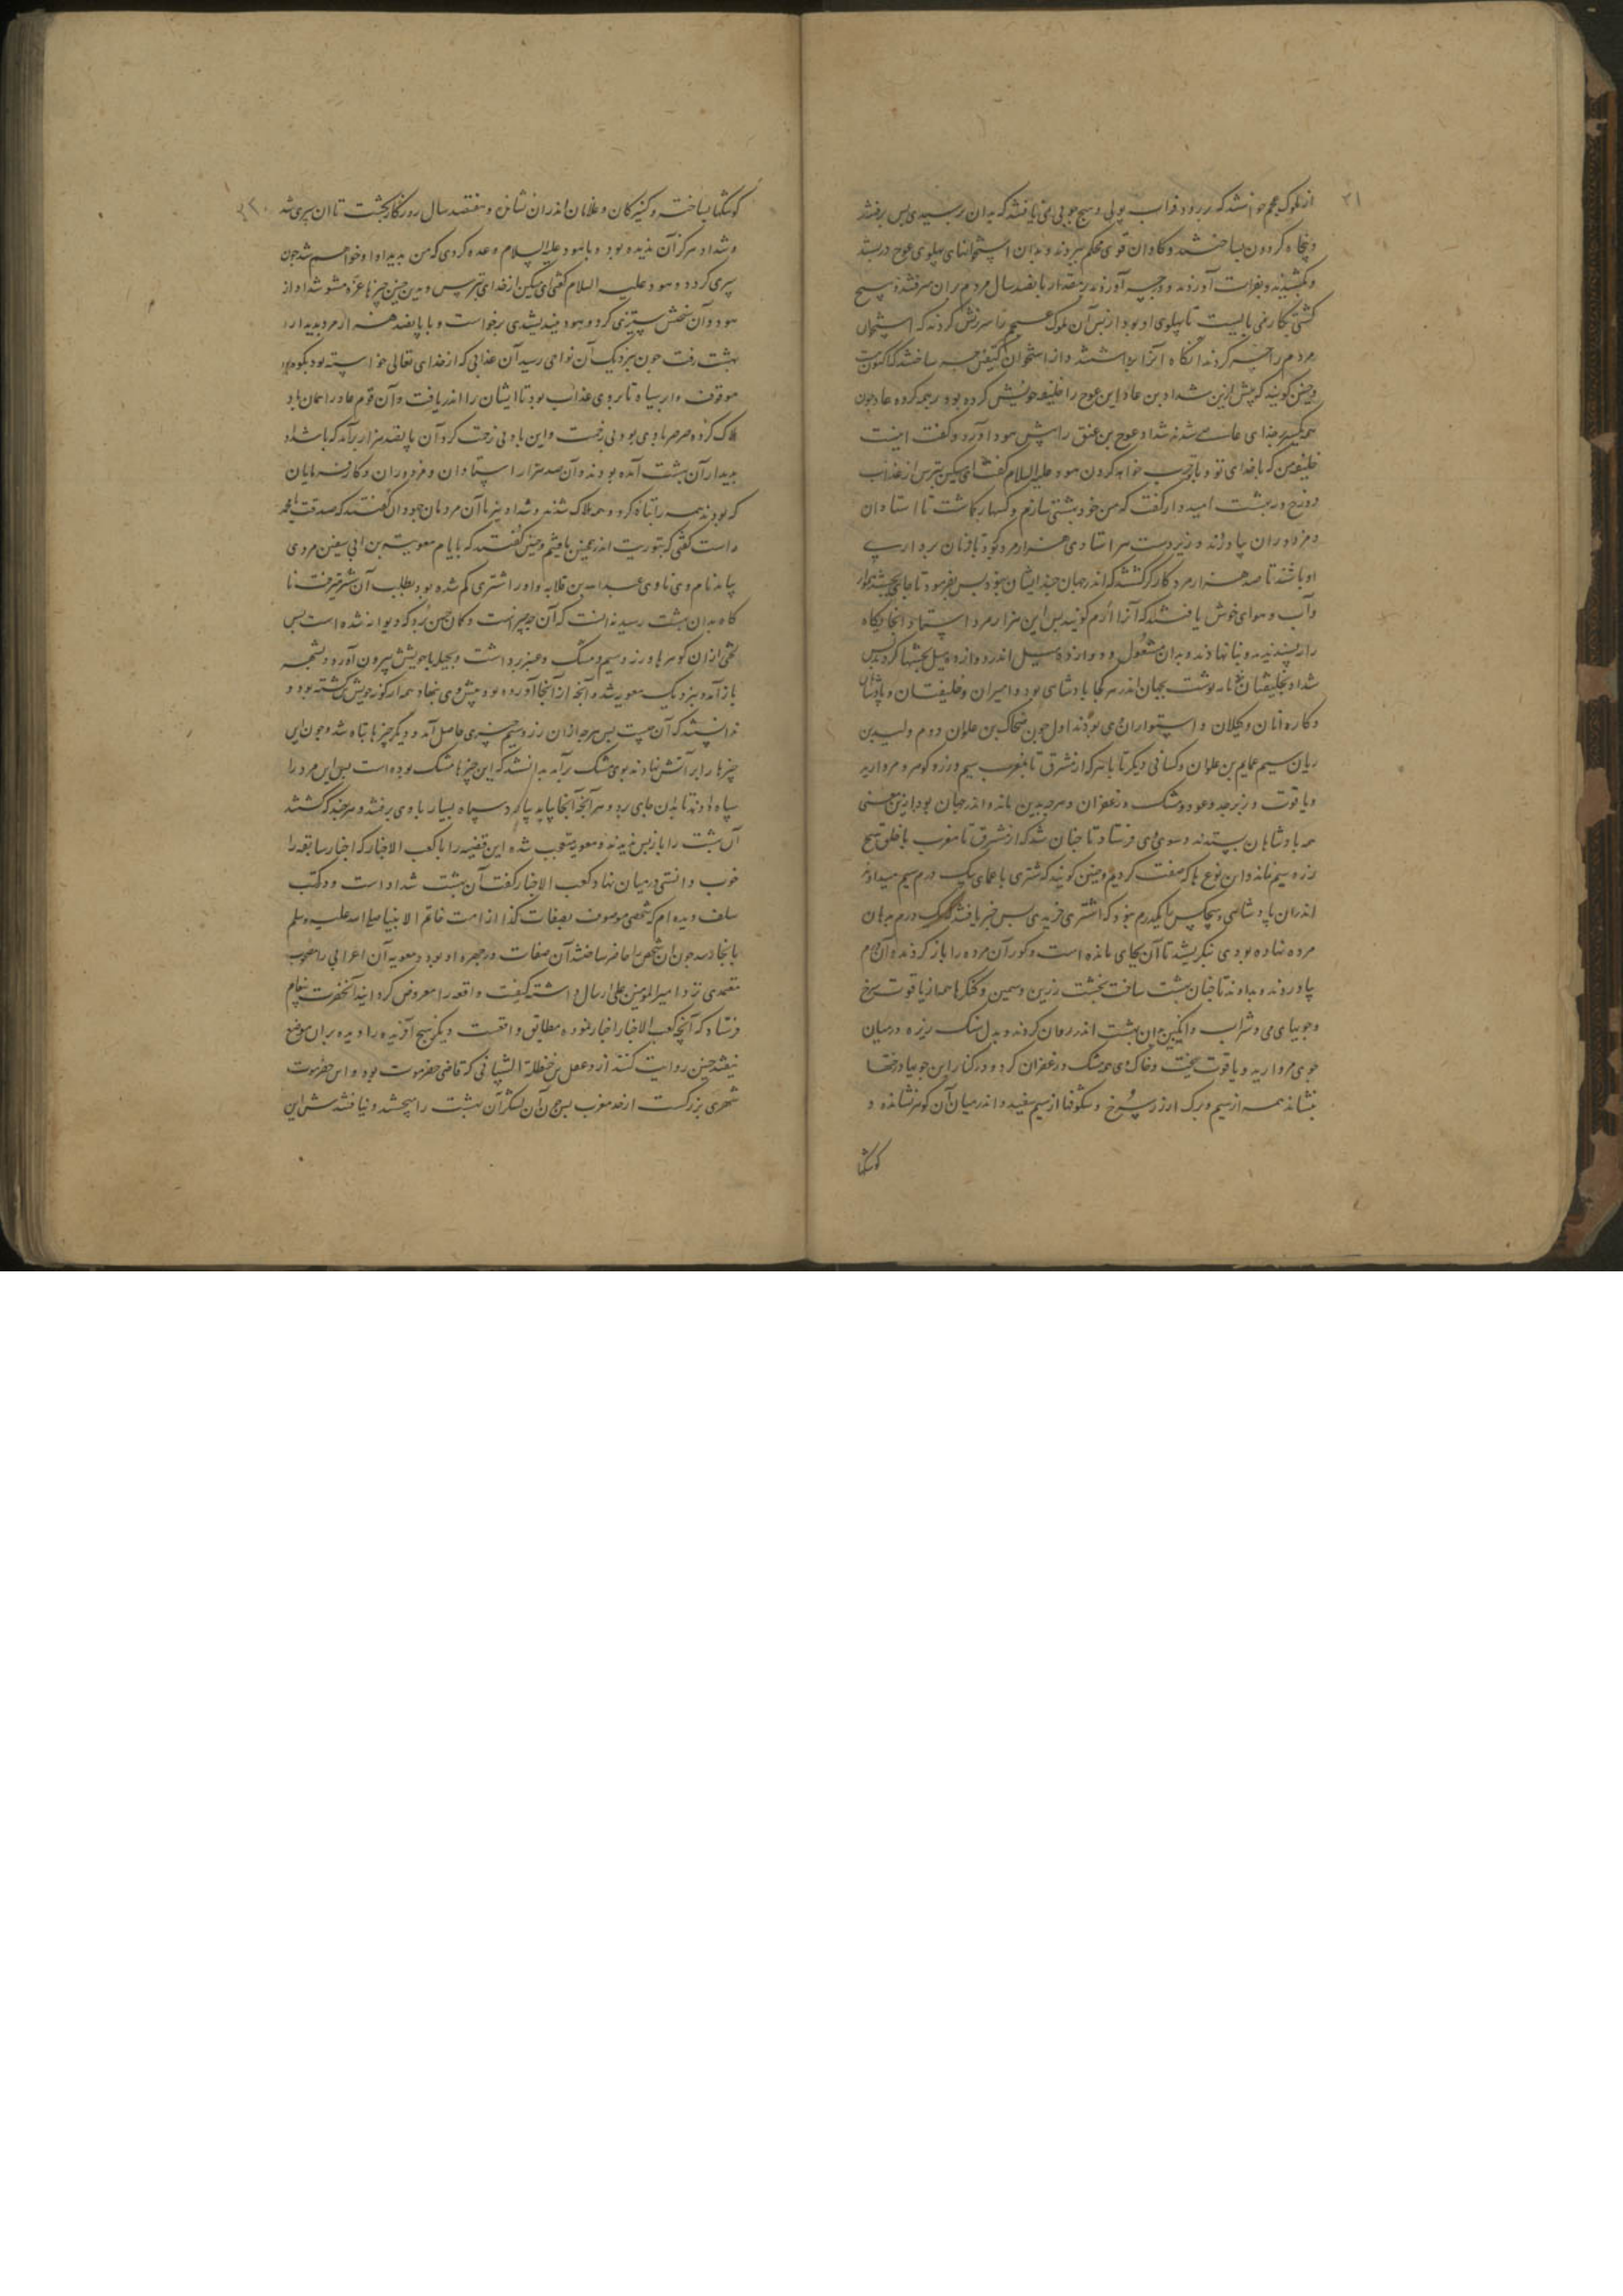 ۲۱
از ملوک عجم خواستند که بر رود فرات پولی و هیچ چوبی نمی یافتند که بدان رسیدی پس برفتند
و پنجاه گردون بساختند و کاوان قوی محکم ببردند و بدان استخوانهای پهلوی عوج در بستند
و بکشیدند و بفرات آوردند و جسر آوردند مقدار پانصد سال مردم بران میرفتند و هیچ
کشتی بکار نمی بایست تا پهلوی او بود از پس آن ملوک عجم را سرزنش کردند که استخوان
مردم را جسر کردند آنگاه آنرا برداشتند و از استخوان
و چنین گویند که پیش ازین شداد بن عاد این عوج را خلیفه خویش کرده بود و چون
شداد عوج بن عنق را پیش هود آورد و گفت اینست
خلیفه من که با خدای تو و با تو حرب خواهد کردن هود علیه السلام گفت ای مسکین بترس از عذاب
دوزخ و در بهشت امید دار گفت که من خود بهشتی بسازم و کس را بکاشت تا استادان
و مزدوران بیاوردند و زیر دست هر استادی هزار مرد بود تا فرمان بردار وی
او باشند تا صد هزار مرد کارگر گشتند که اندر جهان چند ایشان نبود پس بفرمود تا جای بجستند
و آب و هوای خوش یافتند که آنرا ارم گویند پس این هزار مرد استاد آنجایگاه
را بپسندیدند و بنا نهادند و بدان مشغول و دوازده میل اندر دوازده میل
شداد بخلیفتان نامه نوشت بجهان اندر هر کجا پادشاهی بود و امیران و خلیفتان و پادشاهان
و کاردانان و وکیلان و استواران وی بودند اول چون ضحاک بن علوان دوم ولید بن
ریان سیم عمایم بن علوان و کسانی دیگر تا بآنکه از مشرق تا بمغرب سیم و زر و گوهر و مروارید
و یاقوت و زبرجد و عود و مشک و زعفران و هرچه بدین ماند و اندر جهان بود ازین معنی
همه پادشاهان بستدند و سوی وی فرستاد تا چنان شد که از مشرق تا مغرب با خلق هیچ
زر و سیم نماند و این نوع ها که صفت کردیم و چنین گویند که اشتری با عمای یک درم سیم میدادند
اندران پادشاهی و هیچکس را یکدرم نبود که اشتری خریدی پس خبر یافتند که یک درم بدهان
مرده نهاده بودی بنگریستند تا آن کجای مانده است و گور آن مرده را باز کردند و آن درم
بیاوردند و بدادند تا چنان بهشت ساخت بخشت زرین و سیمین و کنگرها همه از یاقوت سرخ
و جویهای می و شراب و انگبین بدان بهشت اندر روان کردند و بدل سنگ ریزه درمیان
جوی مروارید و یاقوت ریخت و خاک وی همه مشک و زعفران کرد و در کنار این جویها درختها
بنشاند همه از سیم و برگ از زر سرخ و شکوفها از سیم سفید و اندر میان آن گوهر نشانده و
کوشکها
کوشکها بساخته و کنیزکان و غلامان اندران نشاند و هفتصد سال روزگار بگشت تا آن سپری شد
و شداد هرگز آن ندیده بود و با هود علیه السلام وعده کردی که من بدیدار او خواهم شد چون
سپری گردد و هود علیه السلام گفتی ای مسکین از خدای بترس و بدین چنین چیزها غره مشو شداد از
هود و آن سخنش ستیزی کرد و هود نیندیشدی برخواست و با پانصد هزار مرد بدیدار
بهشت رفت چون بنزدیک آن نواحی رسید آن عذابی که از خدای تعالی خواسته بود
موقوف تا بروی عذاب بود تا ایشان را اندر یافت و آن قوم عاد را همان باد
هلاک کرد و صرصر بادی بود بی رحمت و این باد بی زحمت کرد آن پانصد هزار برآمد که با شداد
بدیدار آن بهشت آمده بودند و آن صد هزار استادان و مزدوران و کارفرمایان
که بودند همه را تباه کرد و همه هلاک شدند و شداد نیز با آن مردمان جهودان گفتند که صدقت یا محمد
راست گفتی که بتوریت اندر همچنین یافتیم و چنین گفتند که بایام معویه بن ابی سفین مردی
بیامد نام وی ناوی عبدالله بن قلابه و او را اشتری گم شده بود بطلب آن شتر میرفت نا
گاه بدان بهشت رسید ندانست که آن چه چیز است و گمان چنین برد که دیوانه شده است پس
لختی از آن گوهرها و زر و سیم و مشک و عنبر برداشت و بحیله با خویش بیرون آورد و بشهر
باز آمد و بنزدیک معویه شد و آنچه از آنجا آورده بود پیش وی بنهاد همه از گونه خویش گشته بود و
ندانستند که آن چیست پس هرچه از آن زر و سیم چیزی حاصل آمد و دیگر چیزها تباه شد و چون این
چیزها را بر آتش نهادند بوی مشک برآمد بدانستند که این چیزها مشک بوده است پس این مرد را
سپاه دادند تا بدان جای رود و هر آنچه آنجا یابد بیاورد سپاه بسیار با وی برفتند و هرچند که گشتند
آن بهشت را باز پس ندیدند و معویه متعجب شده این قضیه را با کعب الاخبار که اخبار سابقه را
خوب دانستی درمیان نهاد کعب الاخبار گفت آن بهشت شداد است و در کتب
سلف دیده ام که شخصی موصوف بصفات کذا از امت خاتم الانبیا صلی الله علیه و سلم
بآنجا رسد چون آن شخص را حاضر ساختند آن صفات در چهره او بود و معویه آن اعرابی را مصحوب
معتمدی نزد امیر المومنین علی ارسال داشته کیفیت واقعه را معروض گردانید آنحضرت پیغام
فرستاد که آنچه کعب الاخبار اخبار نموده مطابق واقعست و دیگر هیچ آفریده را دیده بران موضع
نیفتد چنین روایت کنند از دعفل بن حنظلة الشیبانی که قاضی حضرموت بود و این حضرموت
شهری بزرگست از حد مغرب پس چون آن لشکر آن بهشت را بجستند و نیافتند پیش این